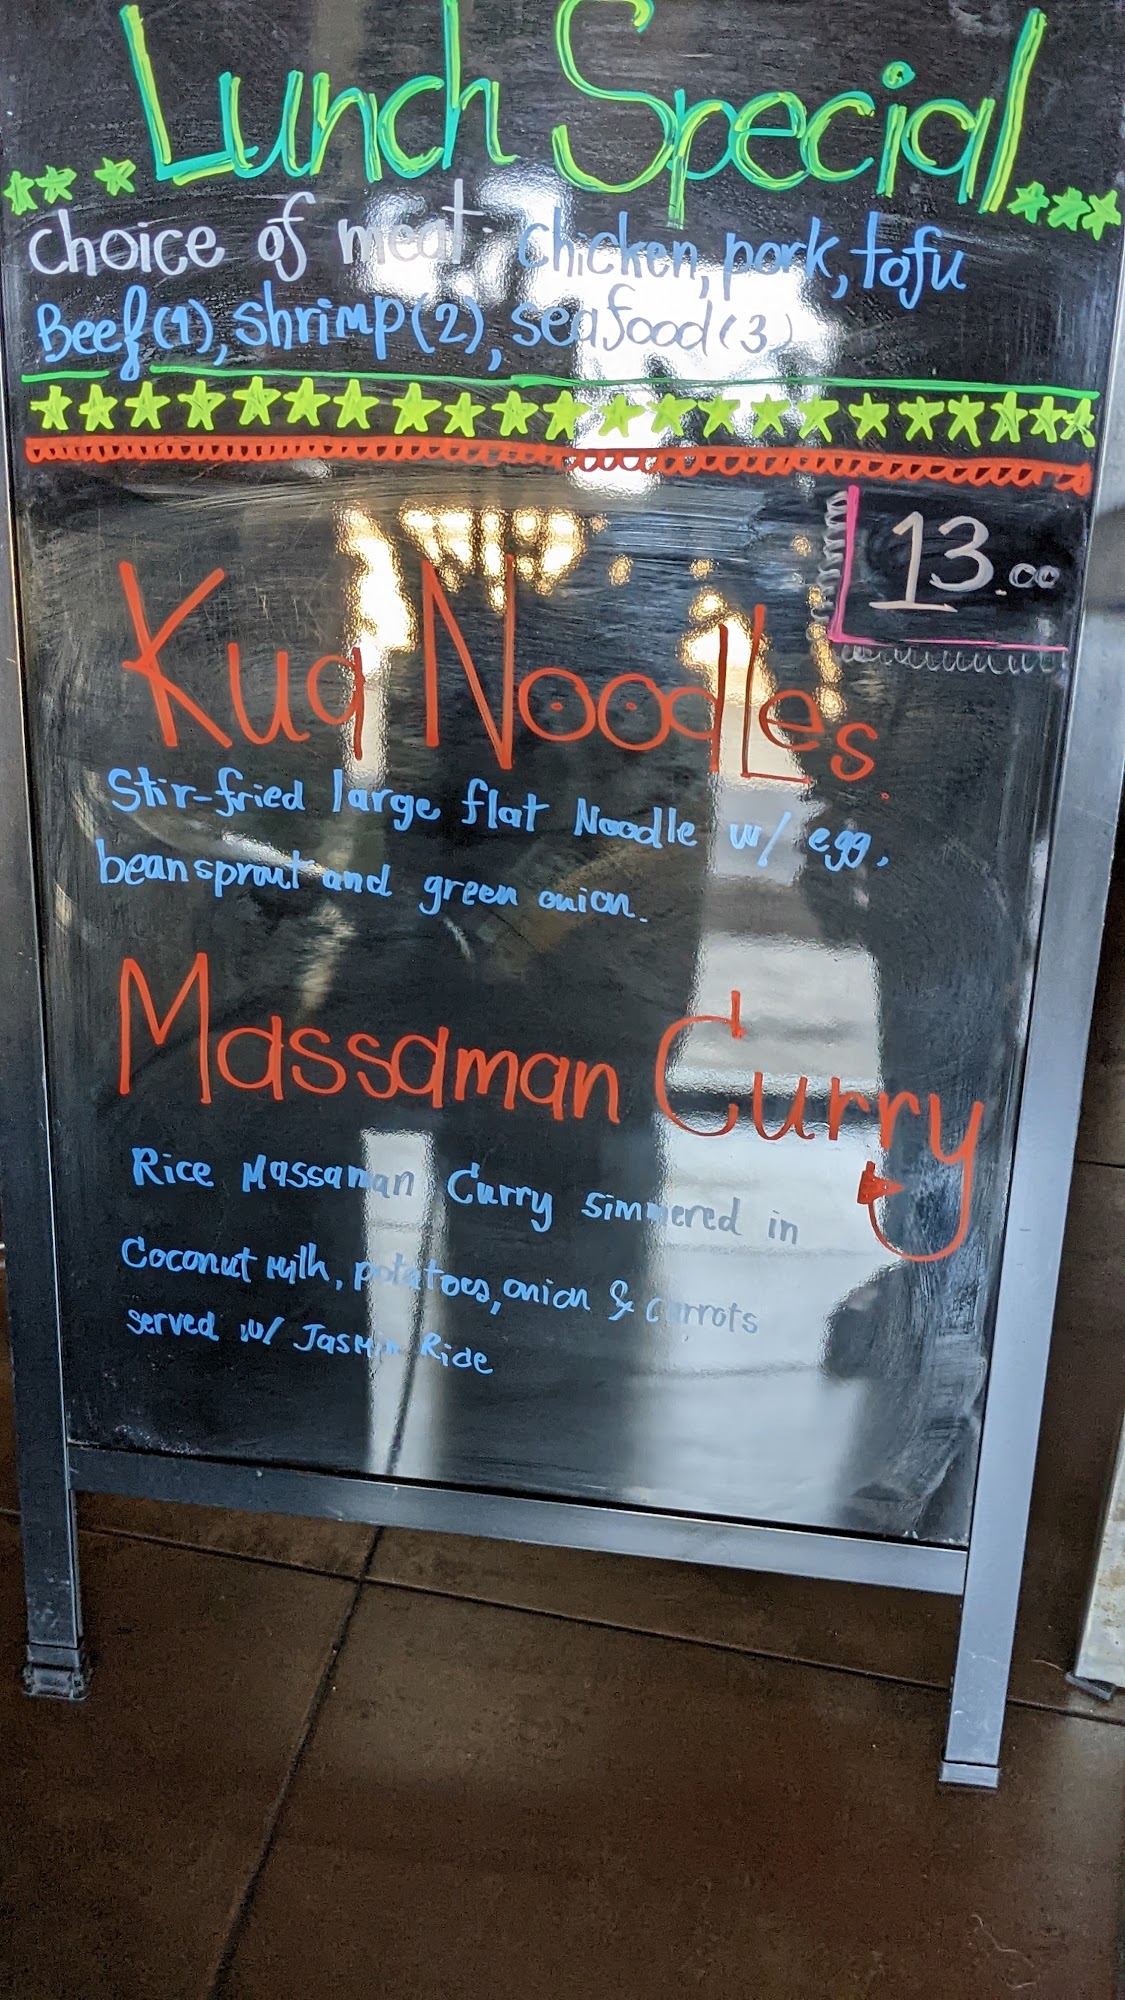 Lunch Special
choice of meat: chicken, pork, tofu
Beef(1), shrimp(2), seafood(3)
13.00
Kua Noodles
Stir-fried large flat Noodle w/ egg,
bean sprout and green onion.
Massaman Curry
Rice Massaman Curry simmered in
Coconut Milk, potatoes, onion & carrots
served w/ Jasmin Ride